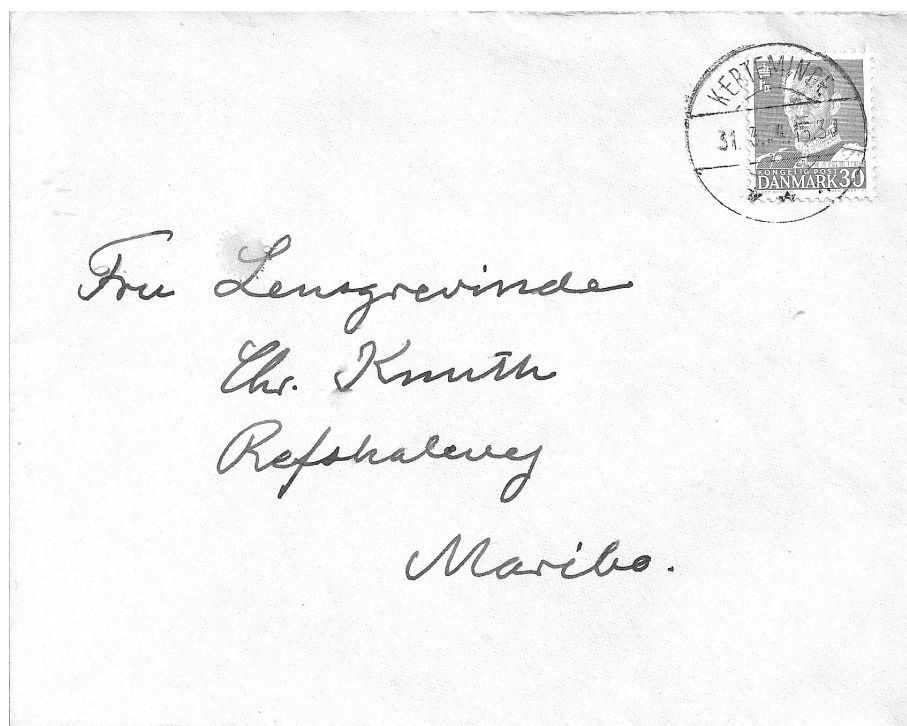 KERTEMINDE
31. 15.30
KONGELIG POST
DANMARK 30
Fru Lensgrevinde
Chr. Knuth
Refshalevej
Maribo.